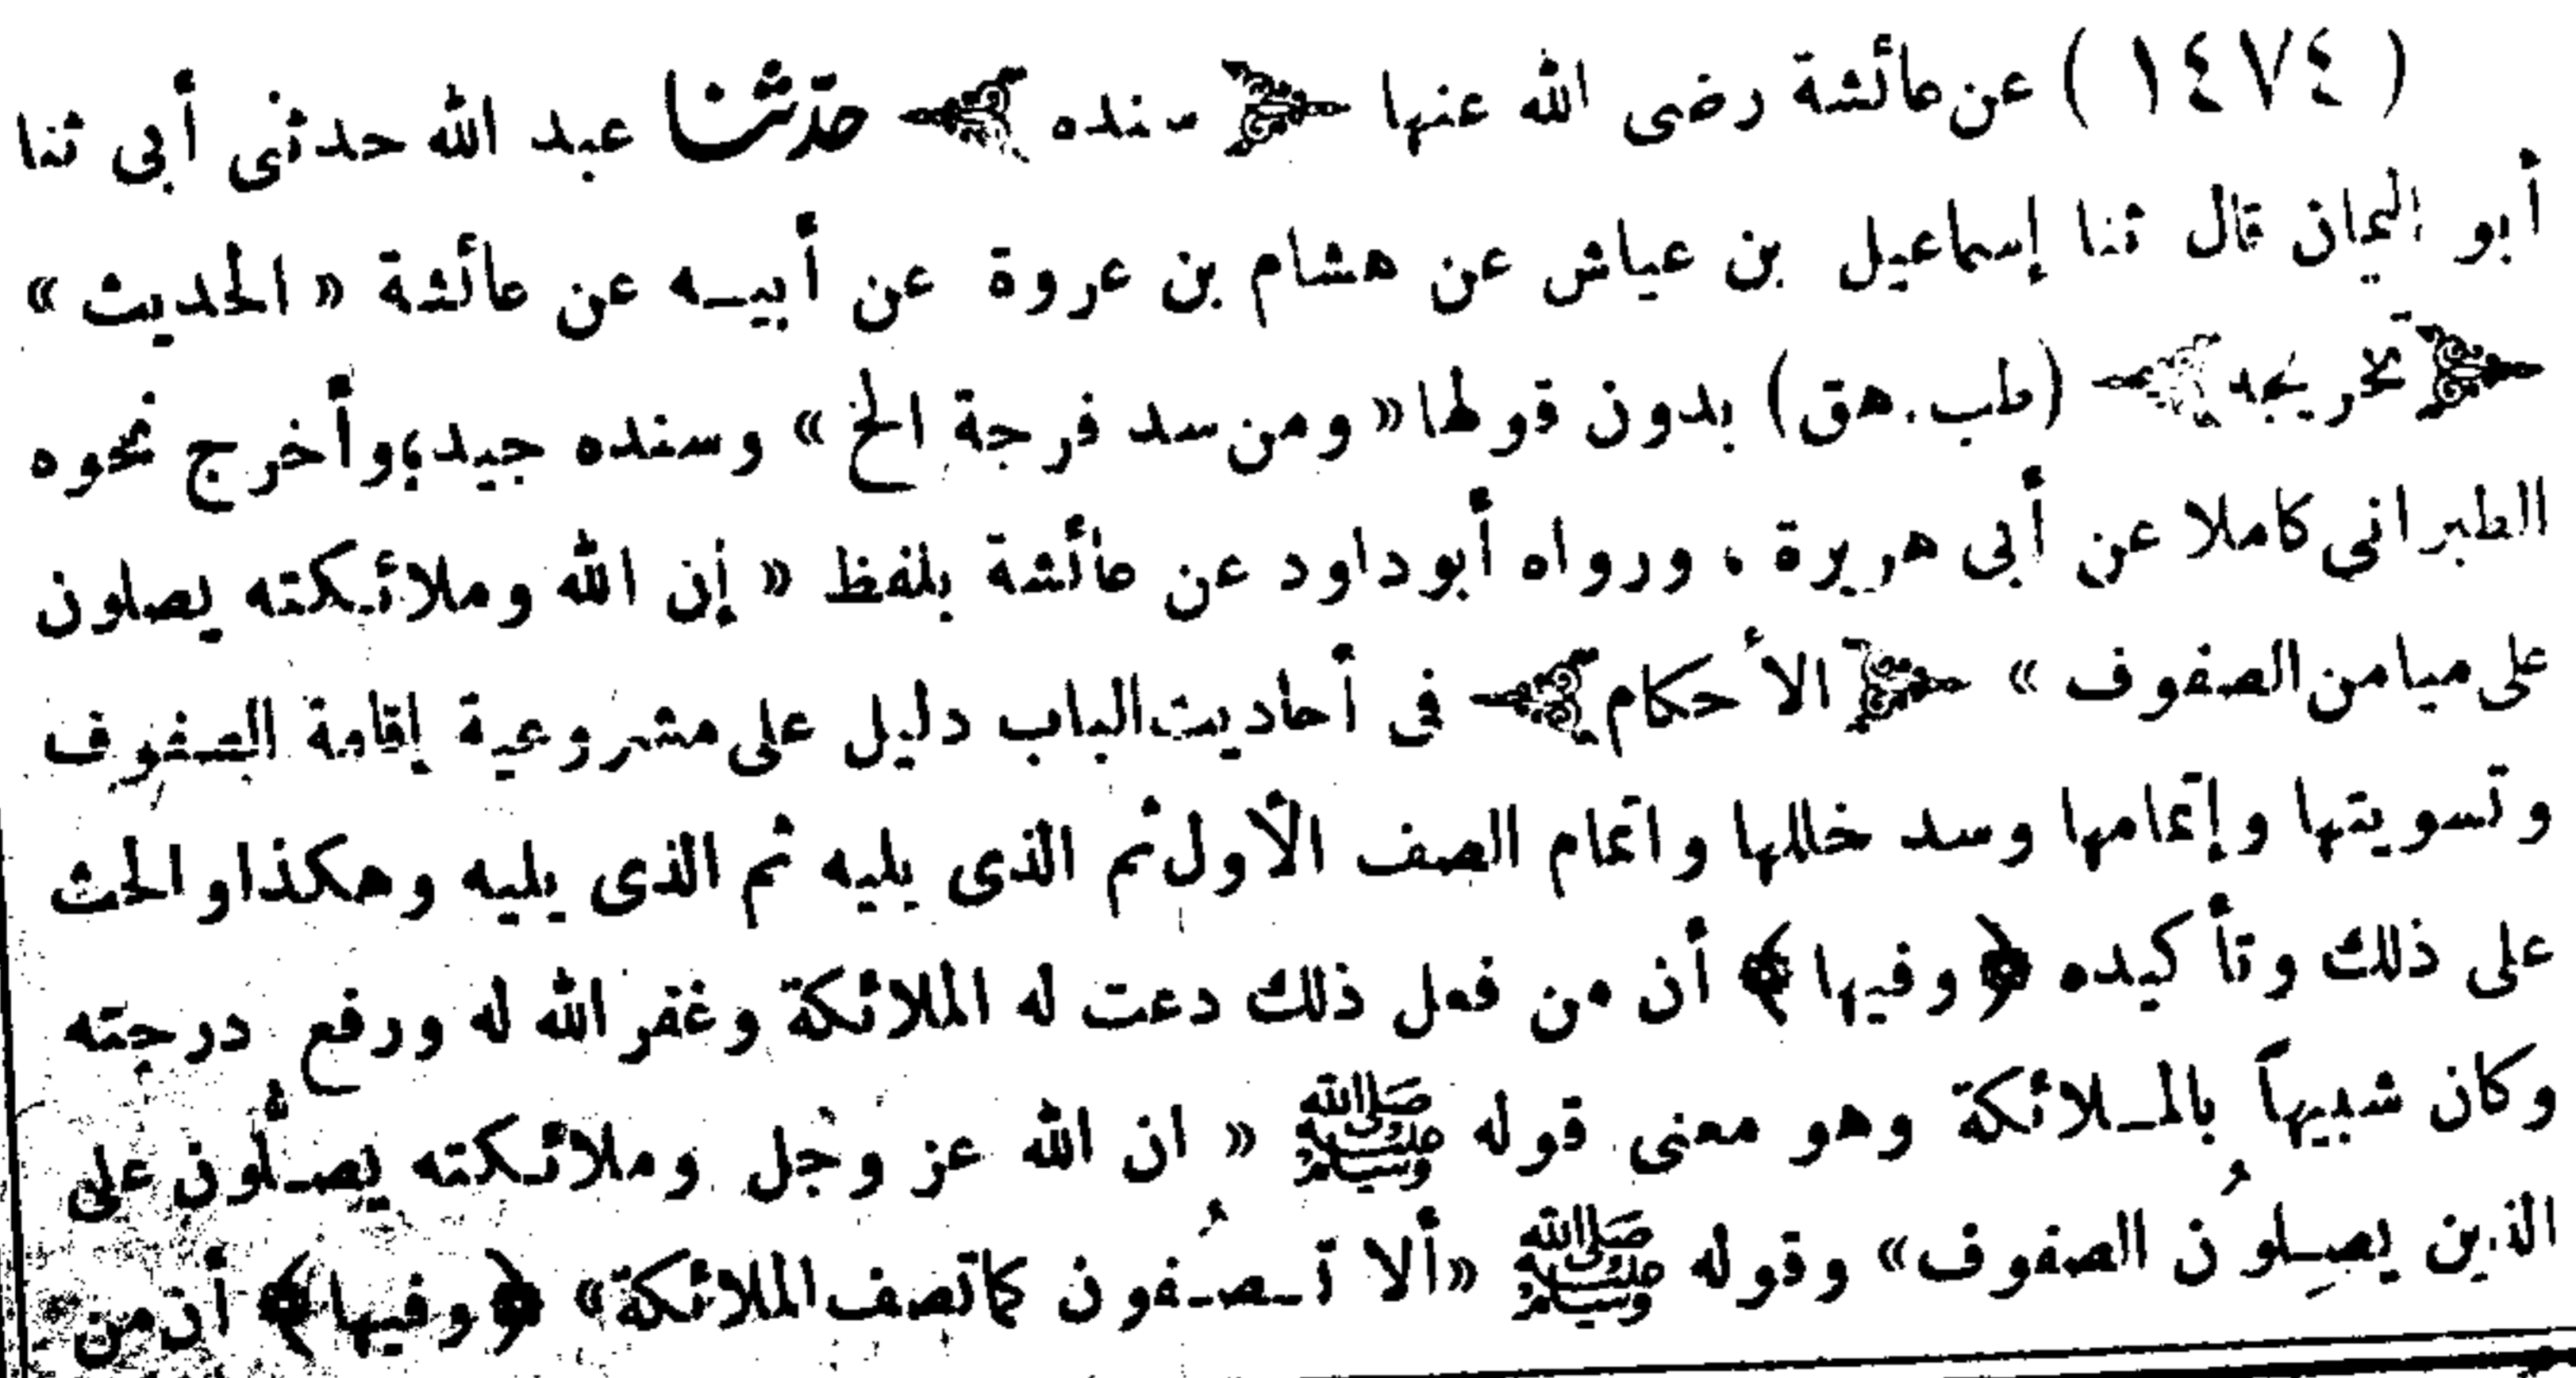 ( ١٤٧٤ ) عن عائشة رضى الله عنها ﴿ سنده ﴾ حدّثنا عبد الله حدثنى أبى ثنا
أبو اليمان قال ثنا إسماعيل بن عياش عن هشام بن عروة عن أبيـه عن عائشة « الحديث »
﴿ تخريجه ﴾ (طب . هق) بدون قولها « ومن سد فرجة الخ » وسنده جيد ، وأخرج نحوه
الطبرانى كاملا عن أبى هريرة ، ورواه أبوداود عن عائشة بلفظ « إن الله وملائكته يصلون
على ميامن الصفوف » ﴿ الأحكام ﴾ فى أحاديث الباب دليل على مشروعية إقامة الصفوف
وتسويتها وإتمامها وسد خللها واتمام الصف الأول ثم الذى يليه ثم الذى يليه وهكذا والحث
على ذلك وتأكيده ﴿ وفيها ﴾ أن من فعل ذلك دعت له الملائكة وغفر الله له ورفع درجته
وكان شبيهاً بالمـلائكة وهو معنى قوله ﷺ « ان الله عز وجل وملائكته يصـلُّون على
الذين يصِـلوُن الصفوف » وقوله ﷺ « ألا تـصـُفون كما تصف الملائكة » ﴿ وفيها ﴾ أن من